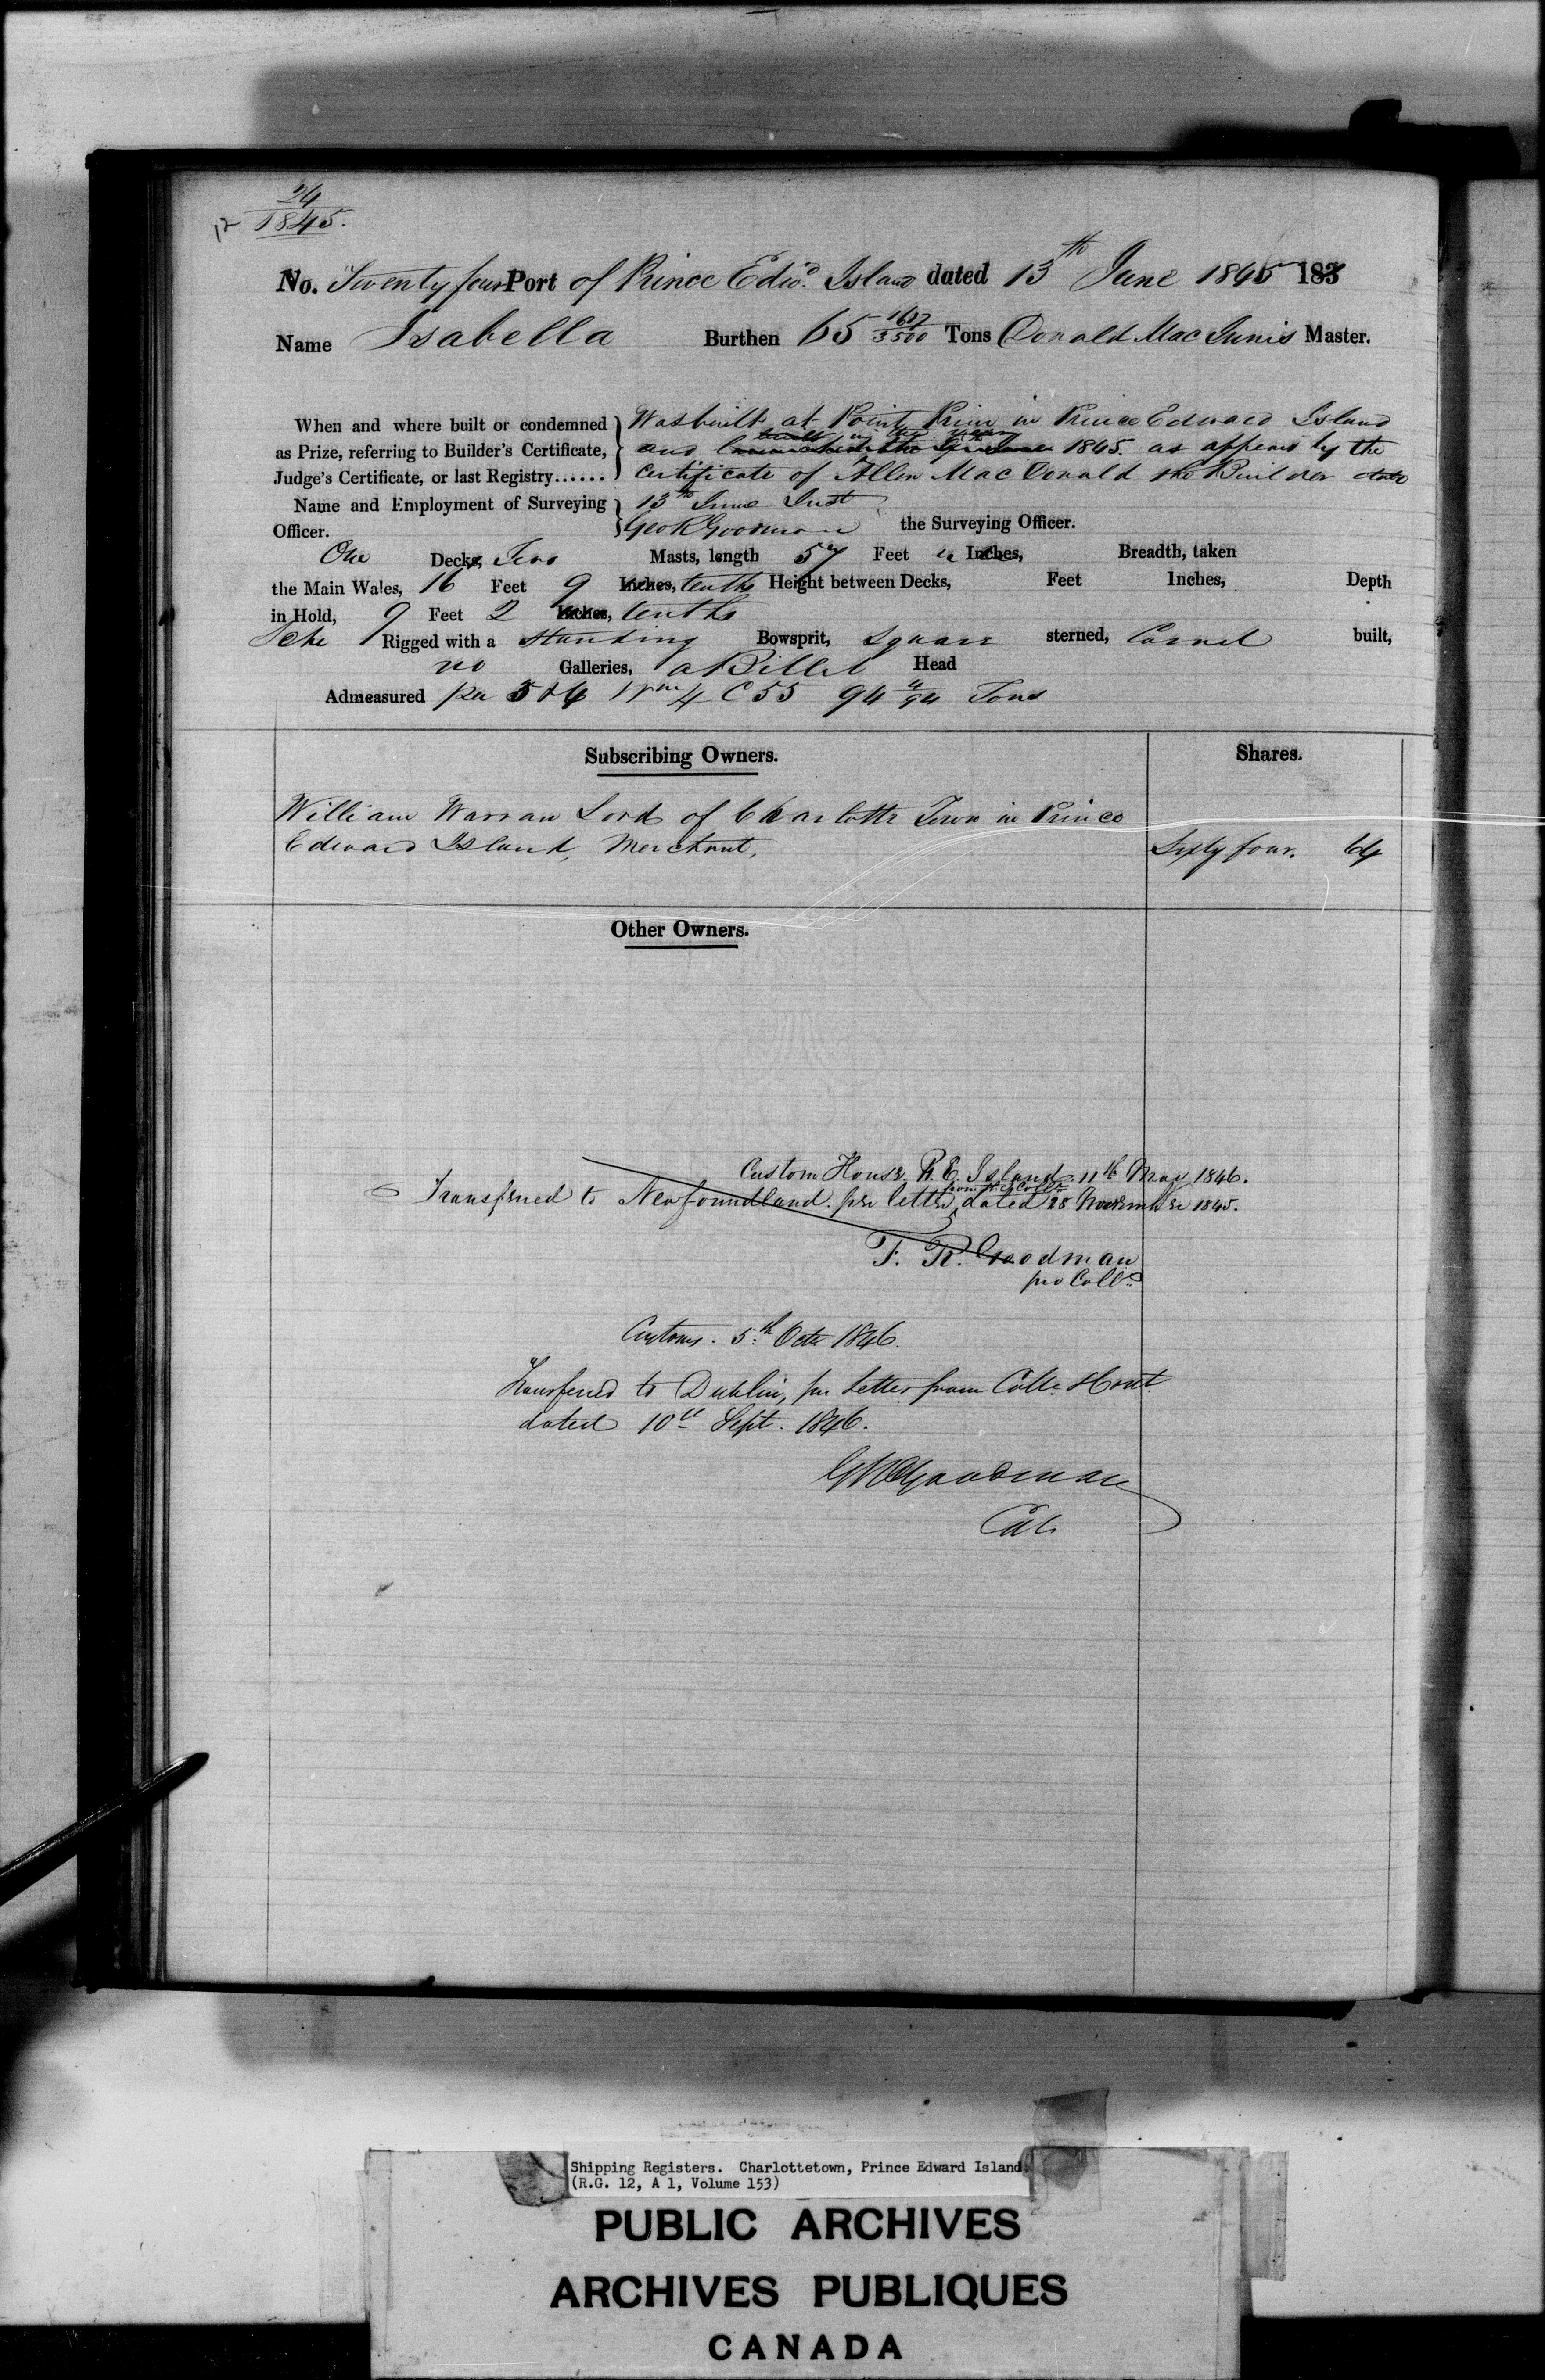 24
1845.
No. Twenty four Port of Prince Edwd. Island dated 13th June 1845 183
Name Isabella Burthen 65 1612/3500 Tons Donald Mac Innis Master.
When and where built or condemned as Prize, referring to Builder's Certificate, Judge's Certificate, or last Registry......
Was built at Point Prim in Prince Edward Island
built in the year
and 1845. as appears by the
Certificate of Allen Mac Donald the Builder date
Name and Employment of Surveying Officer.
13th June Inst
Geo R Goodman the Surveying Officer.
One Decks, Two Masts, length 57 Feet Inches, Breadth, taken
the Main Wales, 16 Feet 9 Inches, tenths Height between Decks, Feet Inches, Depth
in Hold, 9 Feet 2 Inches, tenths
Sche Rigged with a Standing Bowsprit, Square sterned, Carvel built,
no Galleries, a Billet Head
Admeasured per 5 & 6 4 C 55 94 Tons
Subscribing Owners. Shares.
William Warran Lord of Charlotte Town in Prince
Edward Island, Merchant, Sixty four. 64
Other Owners.
Custom House. P. E. Island. 11th May 1846.
from the Collr
Transferred to Newfoundland. per letter dated 28 November 1845.
F. R. Goodman
pro Collr
Customs. 5th Octr 1846.
Transferred to Dublin, per Letter from Collr. there
dated 10th Sept. 1846.
G R Goodman
Col.
Shipping Registers. Charlottetown, Prince Edward Island.
(R.G. 12, A 1, Volume 153)
PUBLIC ARCHIVES
ARCHIVES PUBLIQUES
CANADA